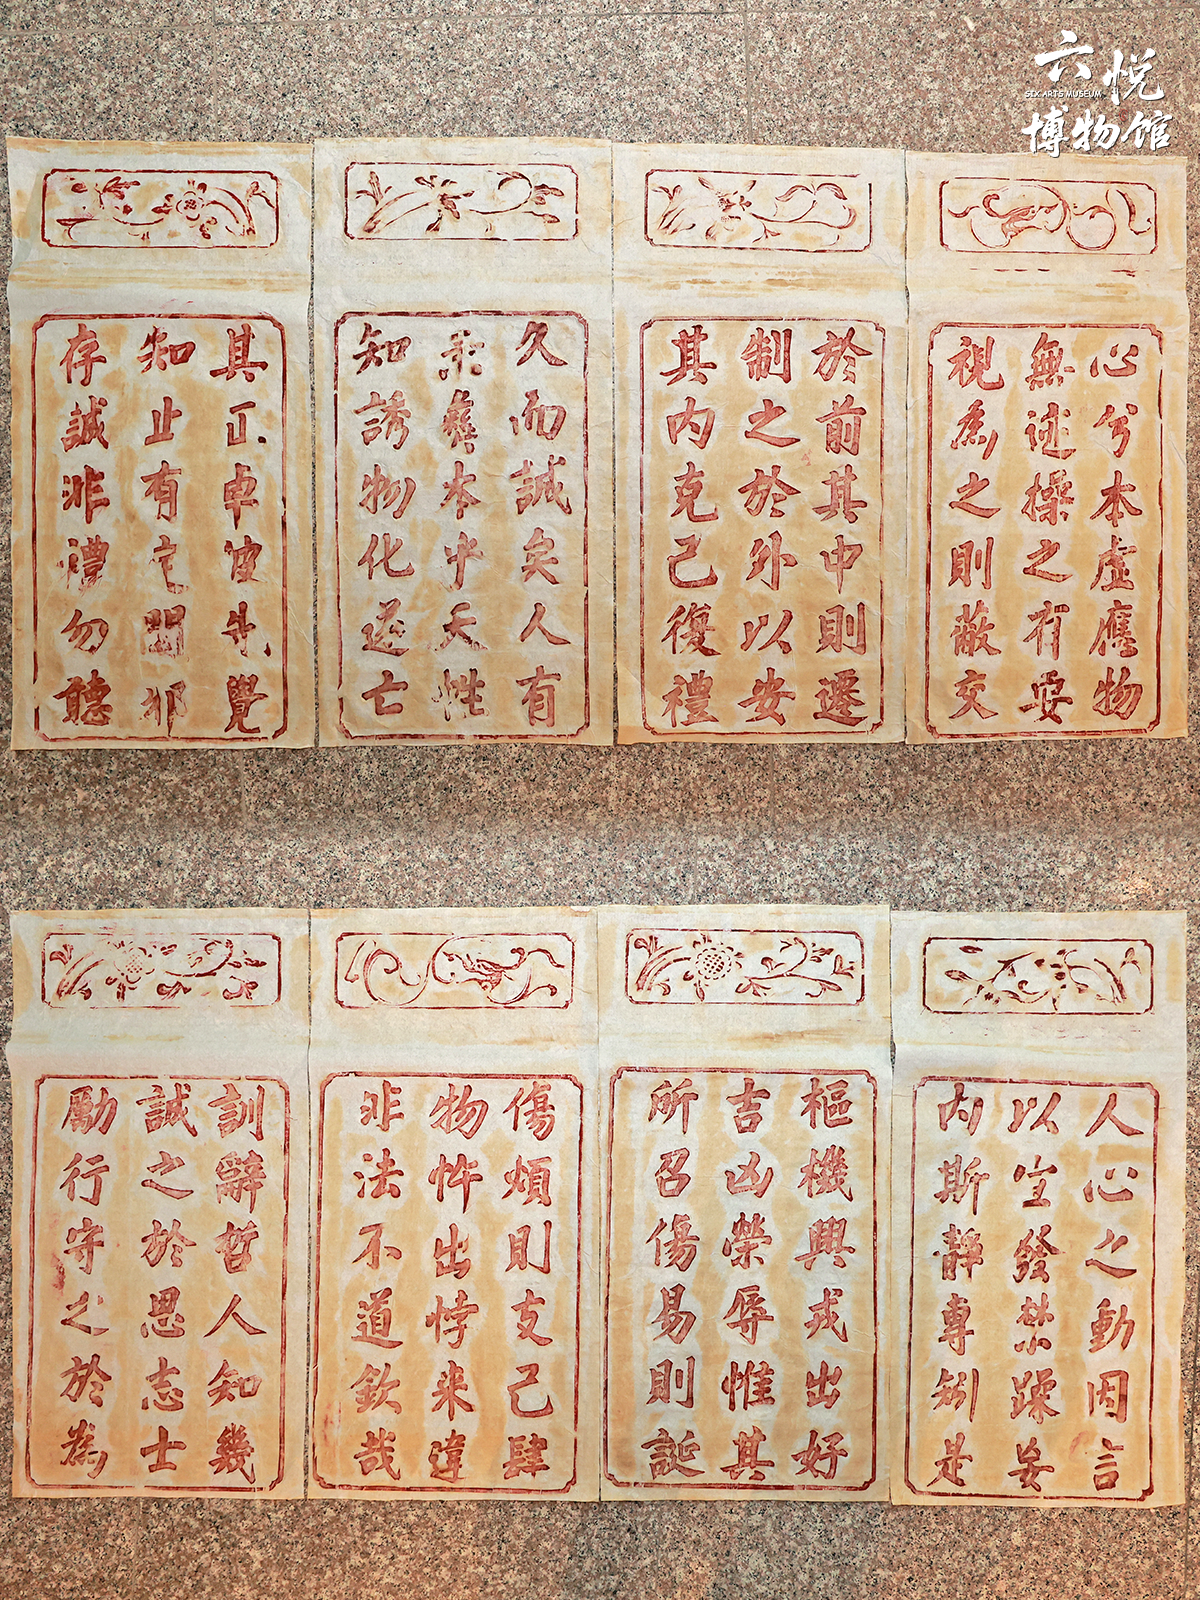 六悦
SIX ARTS MUSEUM
博物馆
心兮本虛應物
無迹操之有要
視為之則蔽交
於前其中則遷
制之於外以安
其内克己復禮
久而誠矣人有
秉彝本乎天性
知誘物化遂亡
其正卓彼先覺
知止有定閑邪
存誠非禮勿聽
人心之動因言
以宣發禁躁妄
内斯靜專矧是
樞機興戎出好
吉凶榮辱惟其
所召傷易則誕
傷煩則支己肆
物忤出悖来違
非法不道欽哉
訓辭哲人知幾
誠之於思志士
勵行守之於為